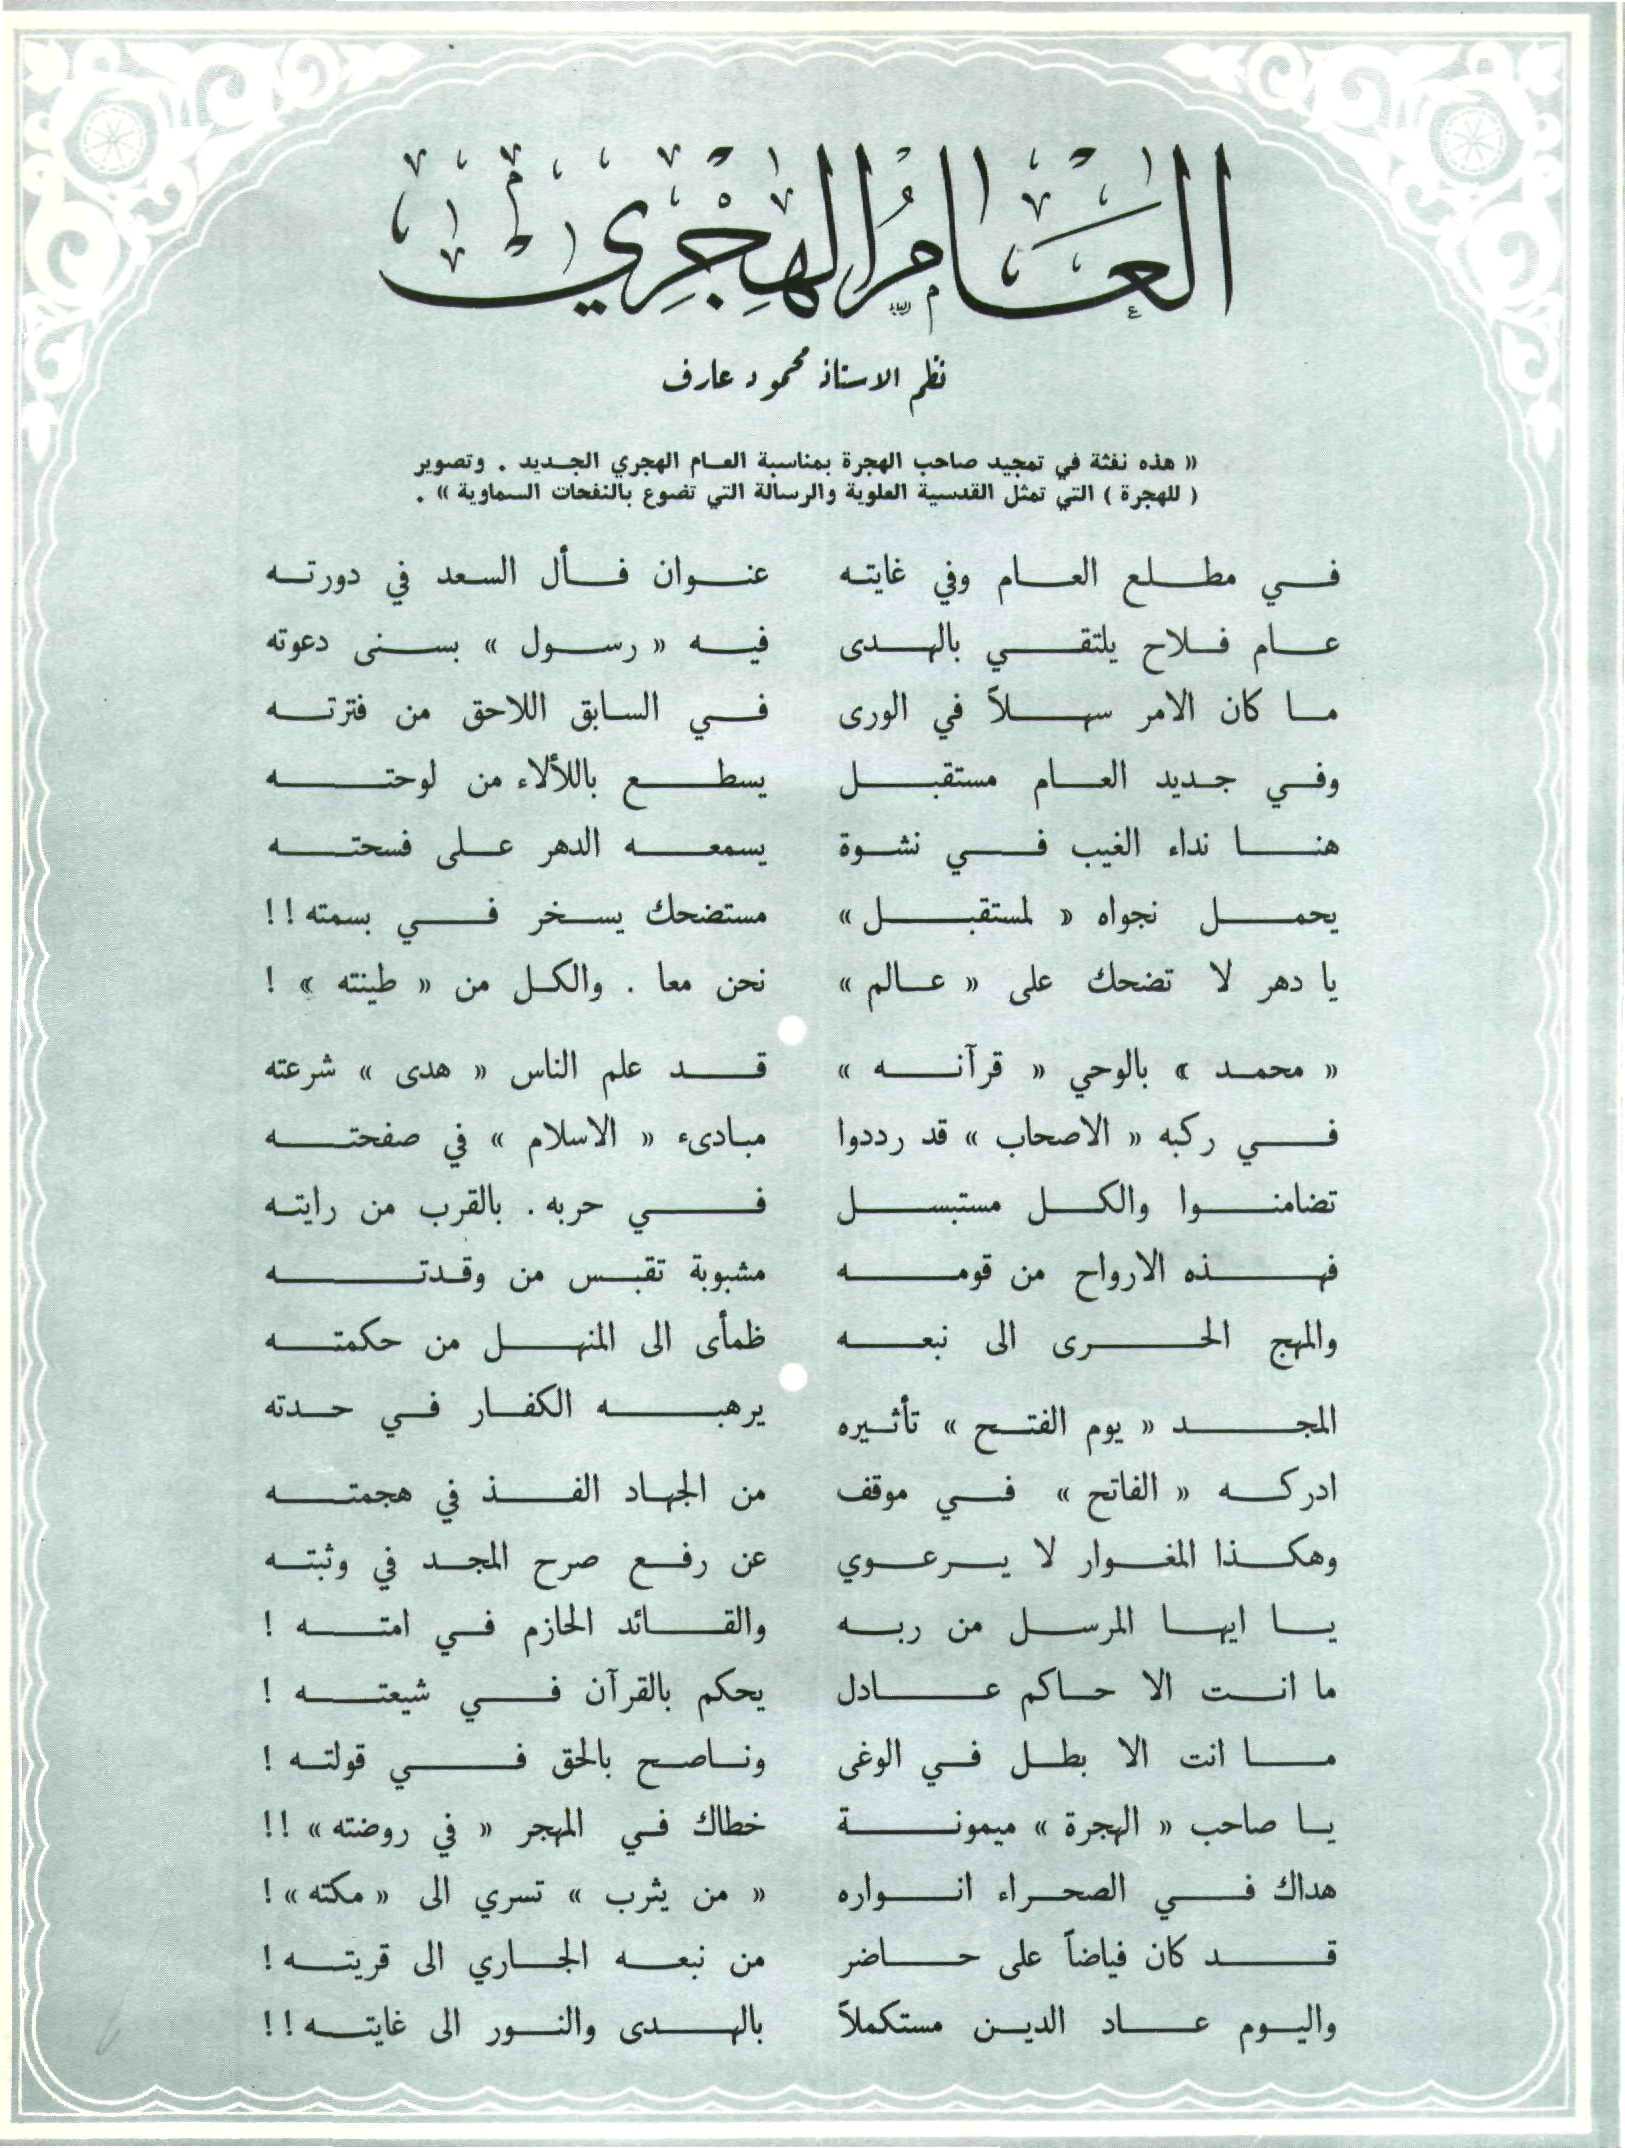 العَامُ الهِجْرِي
نظم الاستاذ محمود عارف
« هذه نفثة في تمجيد صاحب الهجرة بمناسبة العام الهجري الجديد . وتصوير
( للهجرة ) التي تمثل القدسية العلوية والرسالة التي تضوع بالنفحات السماوية » .
في مطلع العام وفي غايته عنوان فأل السعد في دورته
عام فلاح يلتقي بالهدى فيه « رسول » بسنى دعوته
ما كان الامر سهلاً في الورى في السابق اللاحق من فترته
وفي جديد العام مستقبل يسطع باللألاء من لوحته
هنا نداء الغيب في نشوة يسمعه الدهر على فسحته
يحمل نجواه « لمستقبل » مستضحك يسخر في بسمته !!
يا دهر لا تضحك على « عالم » نحن معا . والكل من « طينته » !
« محمد » بالوحي « قرآنه » قد علم الناس « هدى » شرعته
في ركبه « الاصحاب » قد رددوا مبادىء « الاسلام » في صفحته
تضامنوا والكل مستبسل في حربه . بالقرب من رايته
فهذه الارواح من قومه مشبوبة تقبس من وقدته
والمهج الحرى الى نبعه ظمأى الى المنهل من حكمته
المجد « يوم الفتح » تأثيره يرهبه الكفار في حدته
ادركه « الفاتح » في موقف من الجهاد الفذ في هجمته
وهكذا المغوار لا يرعوي عن رفع صرح المجد في وثبته
يا ايها المرسل من ربه والقائد الحازم في امته !
ما انت الا حاكم عادل يحكم بالقرآن في شيعته !
ما انت الا بطل في الوغى وناصح بالحق في قولته !
يا صاحب « الهجرة » ميمونة خطاك في المهجر « في روضته » !!
هداك في الصحراء انواره « من يثرب » تسري الى « مكته » !
قد كان فياضاً على حاضر من نبعه الجاري الى قريته !
واليوم عاد الدين مستكملاً بالهدى والنور الى غايته !!